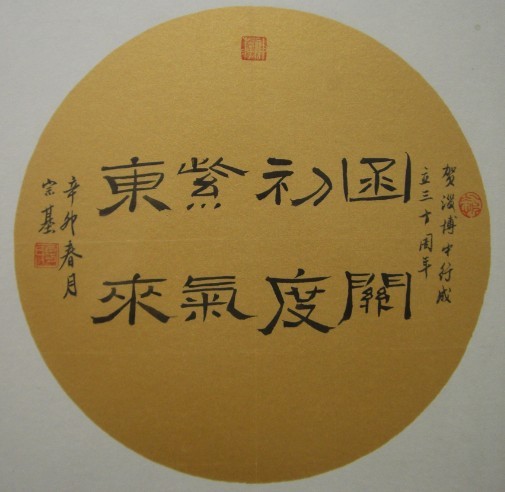 賀淩博中行成
立三十周年
函關
初度
紫氣
東來
辛卯春月
宗基